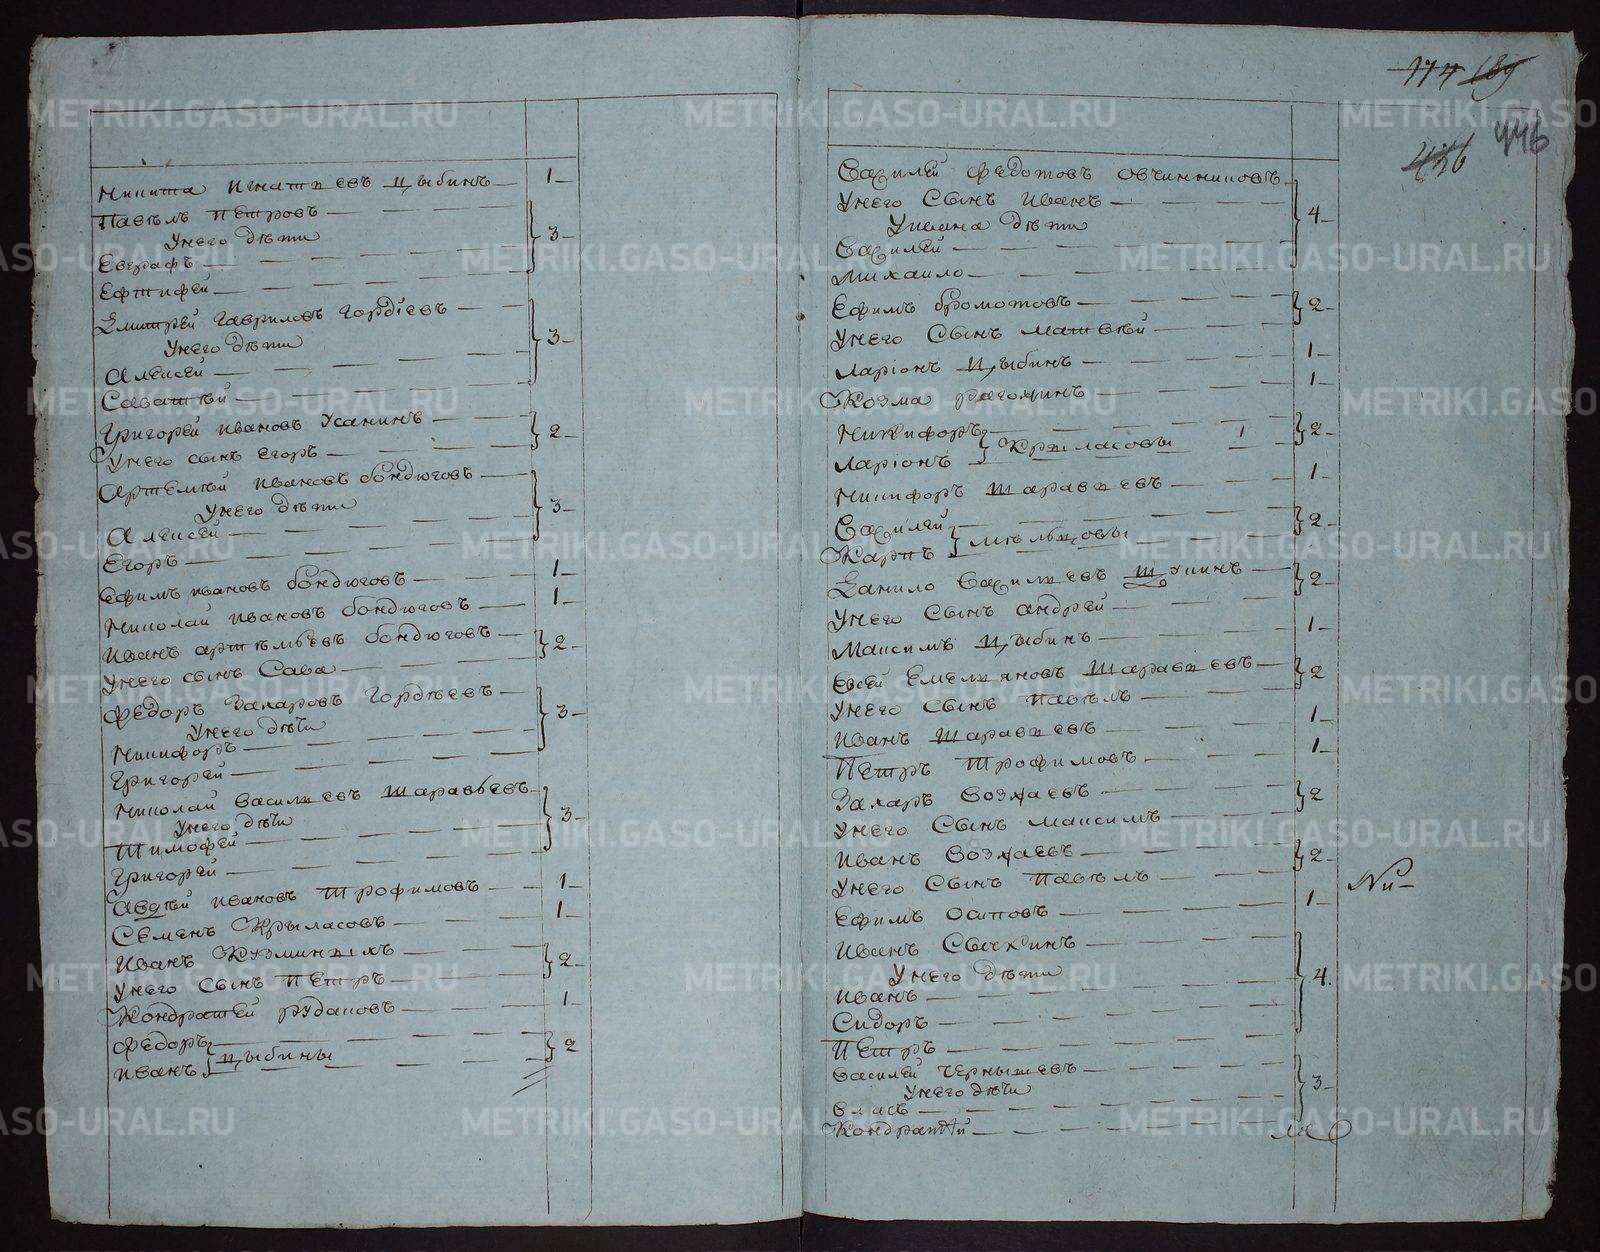 Никита Игнатьевъ Цыбинъ — 1 —
Павѣлъ Петровъ
Унего дѣти — 3 —
Евграфъ
Ефтифей
Дмитрей Гавриловъ Гордіевъ
Унего дѣти — 3 —
Алексей
Саватѣй
Григорей Ивановъ Усанинъ — 2 —
Унего сынъ Егоръ
Артемѣй Ивановъ Бондюговъ
Унего дѣти — 3 —
Алексей
Егоръ
Ефимъ Ивановъ Бондюговъ — 1 —
Николай Ивановъ Бондюговъ — 1 —
Иванъ Артѣмьевъ Бондюговъ — 2 —
Унего сынъ Сава
Федоръ Захаровъ Гордѣевъ
Унего дѣти — 3 —
Никифоръ
Григорей
Николай Васильевъ Шаравьевъ
Унего дѣти — 3 —
Тимофей
Григорей
Авдѣй Ивановъ Трофимовъ — 1 —
Семенъ Крыласовъ — 1 —
Иванъ Кузминыхъ — 2 —
Унего Сынъ Петръ
Кондратей Рудаковъ — 1 —
Федоръ
Иванъ } Цыбины — 2
174 189
446
Василей Федотовъ Овчинниковъ
Унего Сынъ Иванъ — 4 —
Уивана дѣти
Василей
Михаило
Ефимъ Бромотовъ — 2 —
Унего Сынъ Матвѣй
Ларіонъ Цыбинъ — 1 —
Козма Рагожинъ — 1 —
Никифоръ — 2 —
Ларіонъ } Крыласовы
Никифоръ Шаравьевъ — 1 —
Василей — 2 —
Карпъ } Мѣльцовы
Данило Васильевъ — 2 —
Унего Сынъ Андрей
Максимъ Цыбинъ — 1 —
Евсей Емельяновъ Шаравьевъ — 2
Унего Сынъ Павѣлъ
Иванъ Шаравьевъ — 1 —
Петръ Трофимовъ — 1 —
Захаръ Возжаевъ — 2
Унего Сынъ Максимъ
Иванъ Возжаевъ — 2 —
Унего Сынъ Павѣлъ
Ефимъ Осиповъ — 1 —
Иванъ Свечкинъ
Унего дѣти — 4.
Иванъ
Сидоръ
Петръ
Василей Чернышевъ
Унего дѣти — 3 —
Власъ
Кондратѣй
METRIKI.GASO-URAL.RU